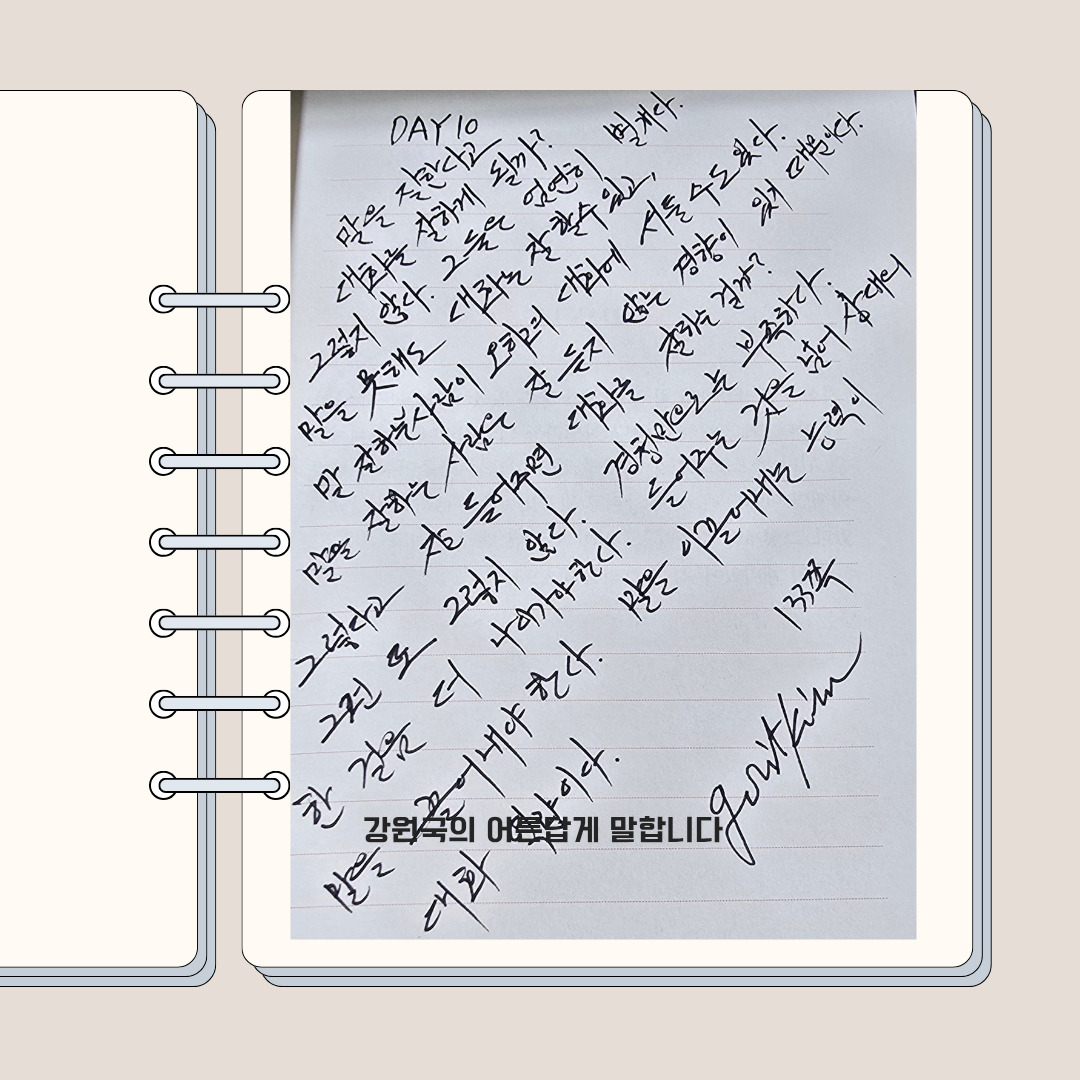 DAY 10
말을 잘한다고
대화를 잘하게 될까?
그렇지 않다. 그 둘은 엄연히 별개다.
말을 못해도 대화는 잘 할 수 있고,
말 잘하는 사람이 오히려 대화에 서툴 수도 있다.
말을 잘하는 사람은 잘 듣지 않는 경향이 있기 때문이다.
그렇다고 잘 들어주면 대화를 잘하는 걸까?
그건 또 그렇지 않다. 경청만으로는 부족하다.
한 걸음 더 나아가야 한다. 들어주는 것을 넘어 상대의
말을 끌어내야 한다. 말을 이끌어내는 능력이
대화 역량이다.
133쪽
강원국의 어른답게 말합니다